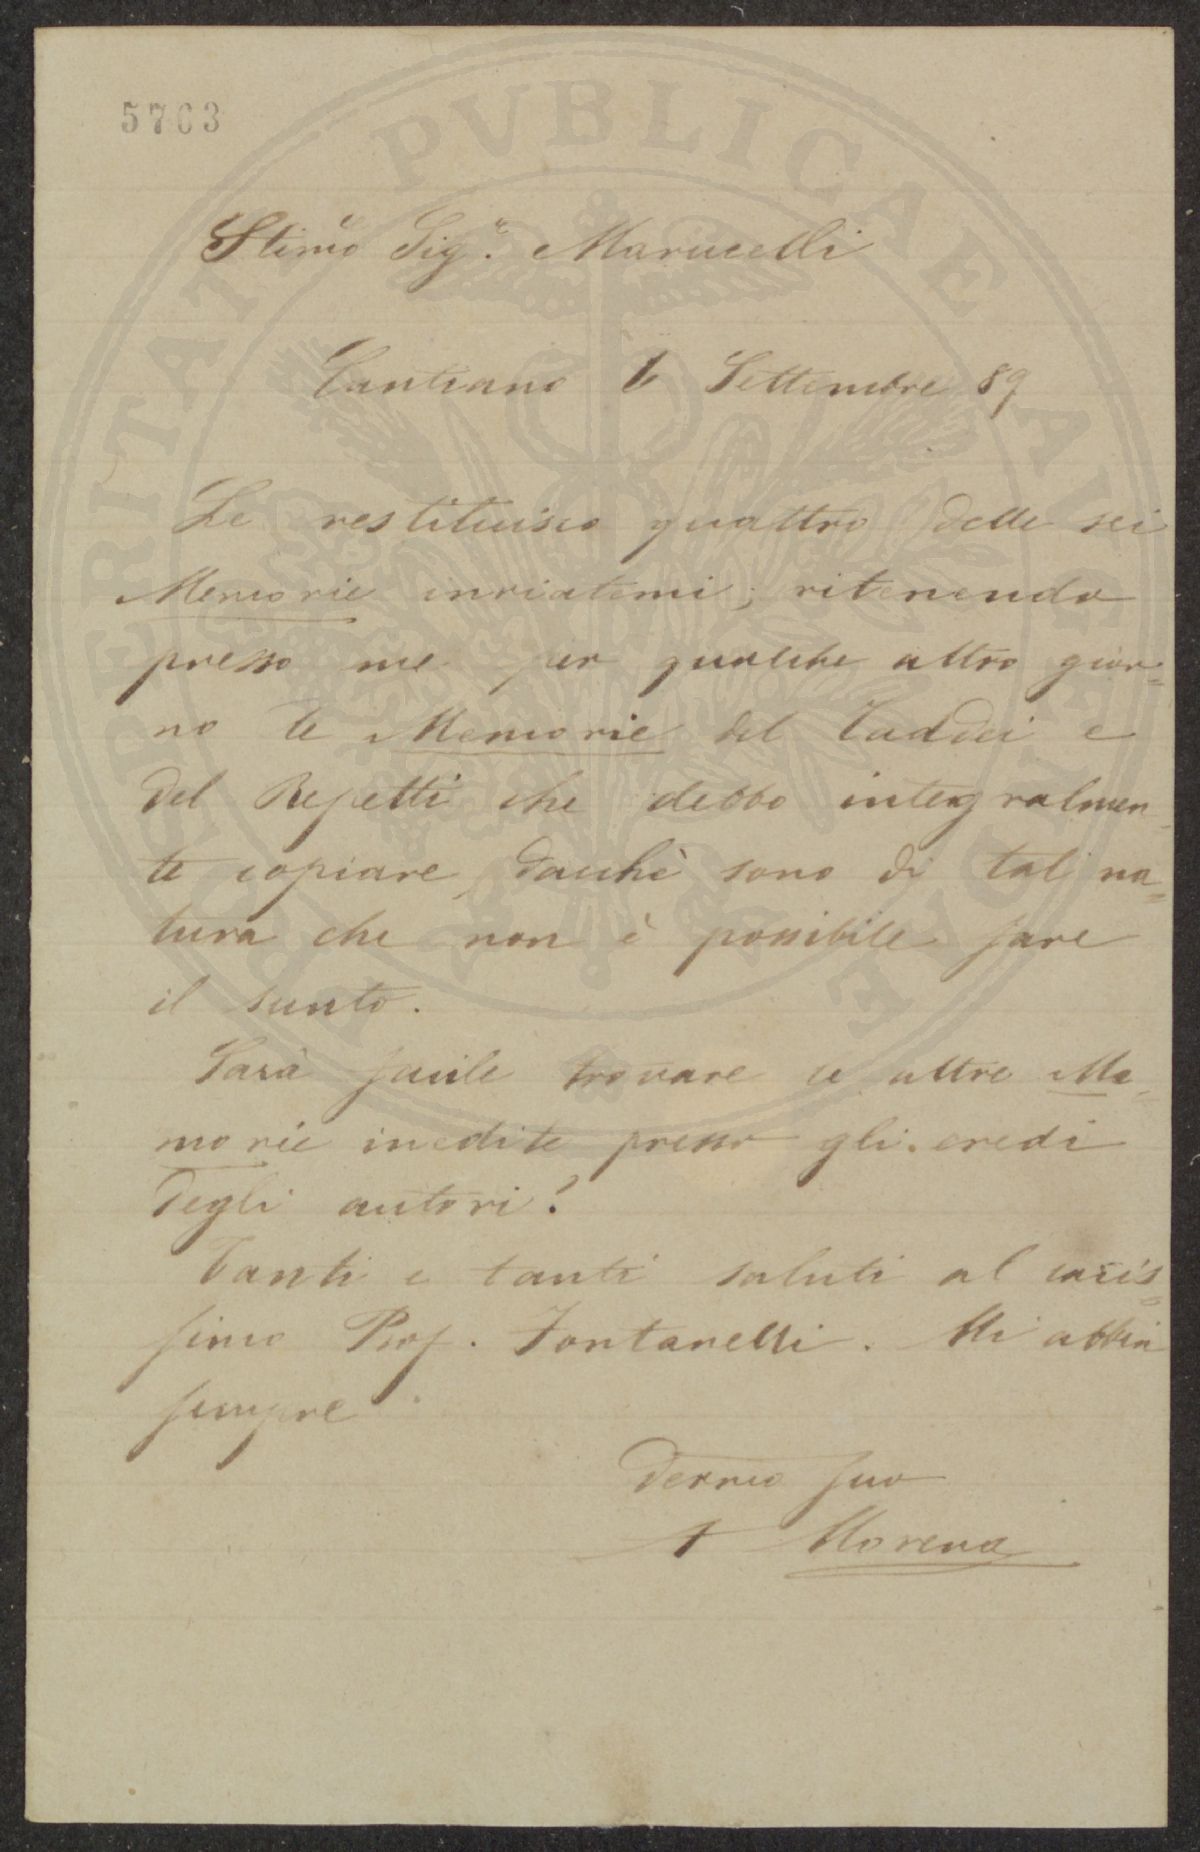 5763
Stim.o Sig.r Marucelli
Cantiano 6 Settembre 89
Le restituisco quattro delle sei
Memorie inviatemi; ritenendo
presso me per qualche altro gior=
no le Memorie del Taddei e
del Repetti che debbo integralmen=
te copiare, dacchè sono di tal na=
tura che non è possibile fare
il sunto.
Sarà facile trovare le altre Me=
morie inedite presso gli eredi
degli autori?
Tanti e tanti saluti al caris=
simo Prof. Fontanelli. Mi abbia
sempre
Devmo suo
A Morena
A PROSPERITAT PVBLICAE AVGENDAE